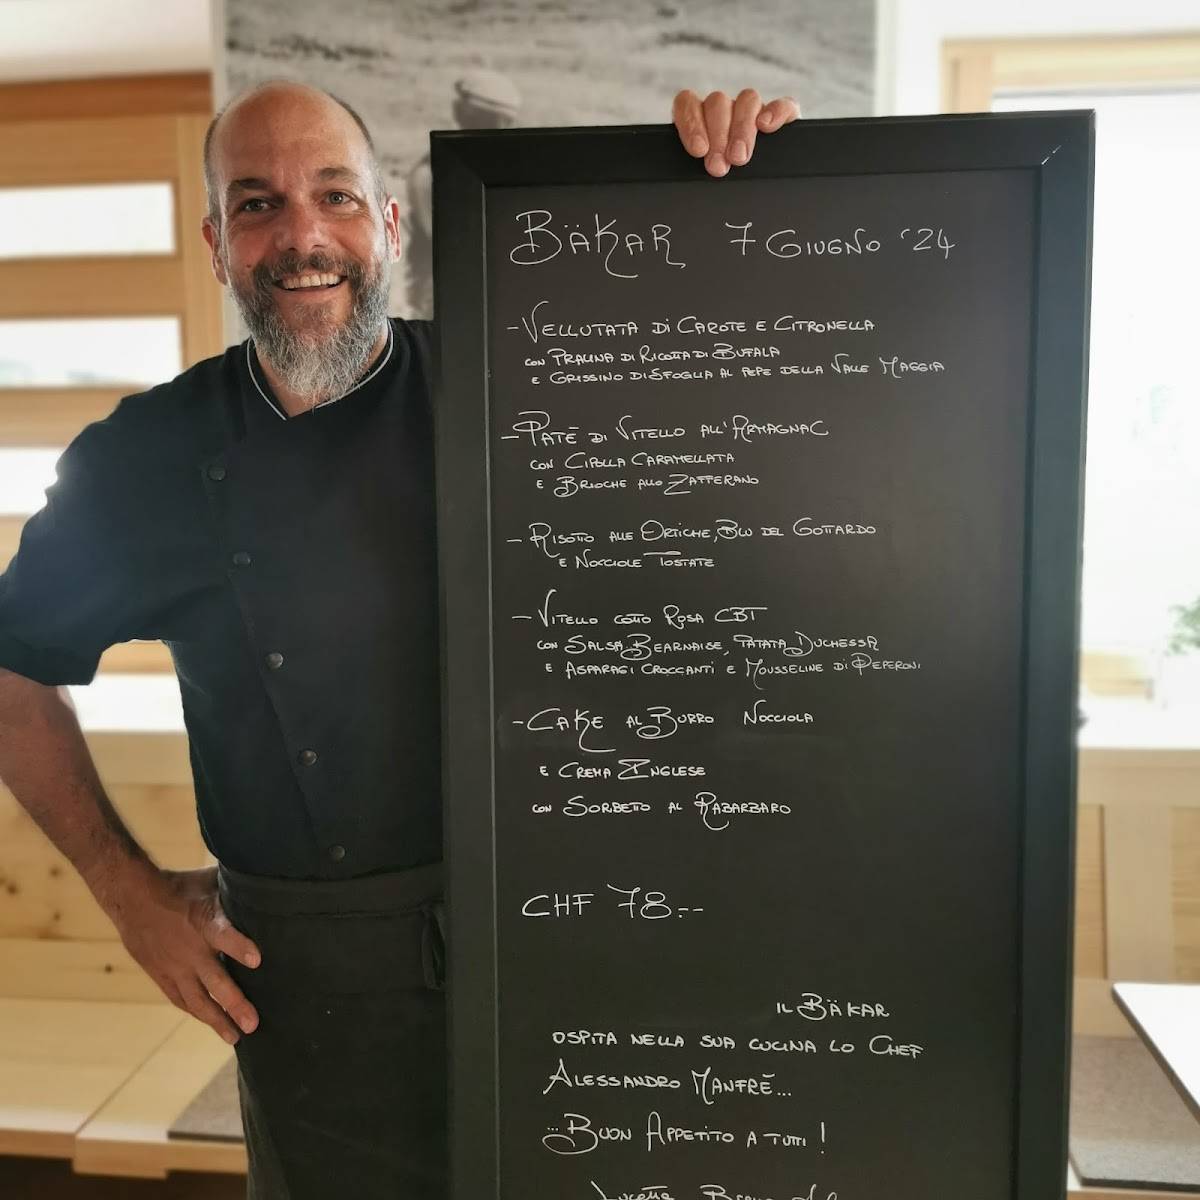 BäKAR 7 GIUGNO '24
- VELLUTATA DI CAROTE E CITRONELLA
CON PRALINA DI RICOTTA DI BUFALA
E GRISSINO DI SFOGLIA AL PEPE DELLA VALLE MAGGIA
- PATÉ DI VITELLO ALL'ARMAGNAC
CON CIPOLLA CARAMELLATA
E BRIOCHE ALLO ZAFFERANO
- RISOTTO ALLE ORTICHE, BLU DEL GOTTARDO
E NOCCIOLE TOSTATE
- VITELLO COTTO ROSA CBT
CON SALSA BEARNAISE, PATATA DUCHESSA
E ASPARAGI CROCCANTI E MOUSSELINE DI PEPERONI
- CAKE AL BURRO NOCCIOLA
E CREMA INGLESE
CON SORBETTO AL RABARBARO
CHF 78.--
IL BäKAR
OSPITA NELLA SUA CUCINA LO CHEF
ALESSANDRO MANFRÈ...
...BUON APPETITO A TUTTI!